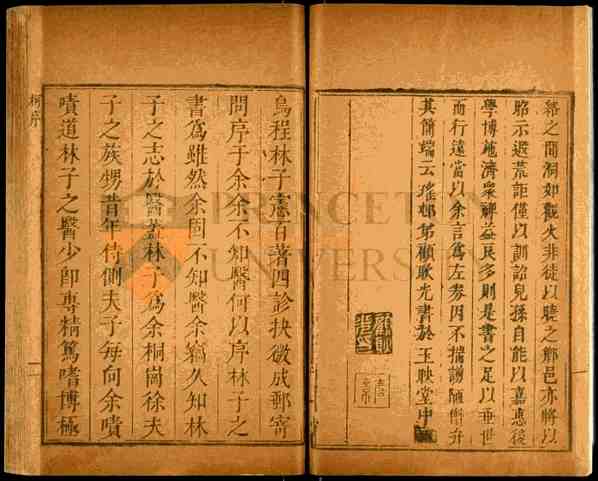 絡之間洞如觀火非徒以曉之鄉邑亦將以
昭示遐荒詎僅以訓詒兒孫自能以嘉惠後
學博施濟衆裨益民多則是書之足以垂世
而行遠當以余言爲左券因不揣謭陋衝弁
其簡端云瑤邨弟顧耿光書於玉映堂中
烏程林子憲百著四診抉微成郵寄
問序于余余不知醫何以序林子之
書爲雖然余固不知醫余竊久知林
子之志於醫蓋林子爲余桐崗徐夫
子之族甥昔年侍側夫子每向余嘖
嘖道林子之醫少即專精篤嗜博極
柯序
一
PRINCETON
UNIVERSITY